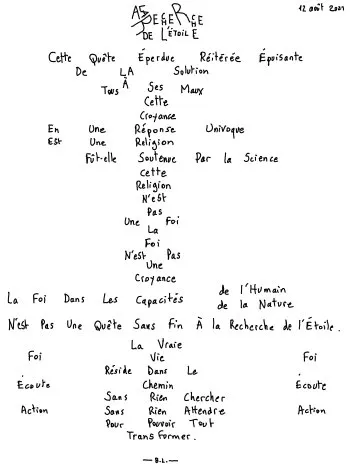 12 août 2021
À LA RECHERCHE
DE L'ÉTOILE
Cette Quête Éperdue Réitérée Épuisante
De LA Solution
À
Tous Ses Maux
Cette
Croyance
En Une Réponse Univoque
Est Une Religion
Fût-elle Soutenue Par la Science
Cette
Religion
N'est
Pas
Une Foi
La
Foi
N'est Pas
Une
Croyance
La Foi Dans Les Capacités de l'Humain
de la Nature
N'est Pas Une Quête Sans Fin À la Recherche de l'Étoile.
La Vraie
Foi Vie Foi
Réside Dans Le
Écoute Chemin Écoute
Sans Rien Chercher
Action Sans Rien Attendre Action
Pour Pouvoir Tout
Transformer.
— B.L. —